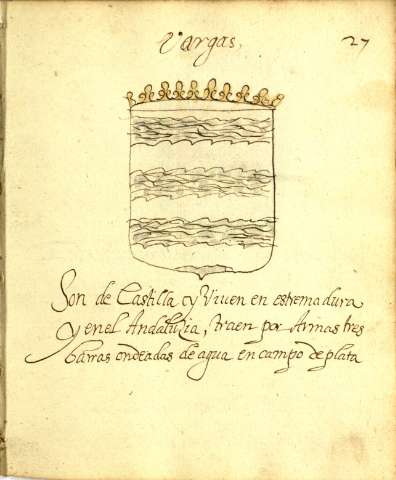 Vargas,
27
Son de Castilla y Viuen en estremadura
y enel Andaluzia, traen por Armas tres
barras ondeadas de agua en campo de plata